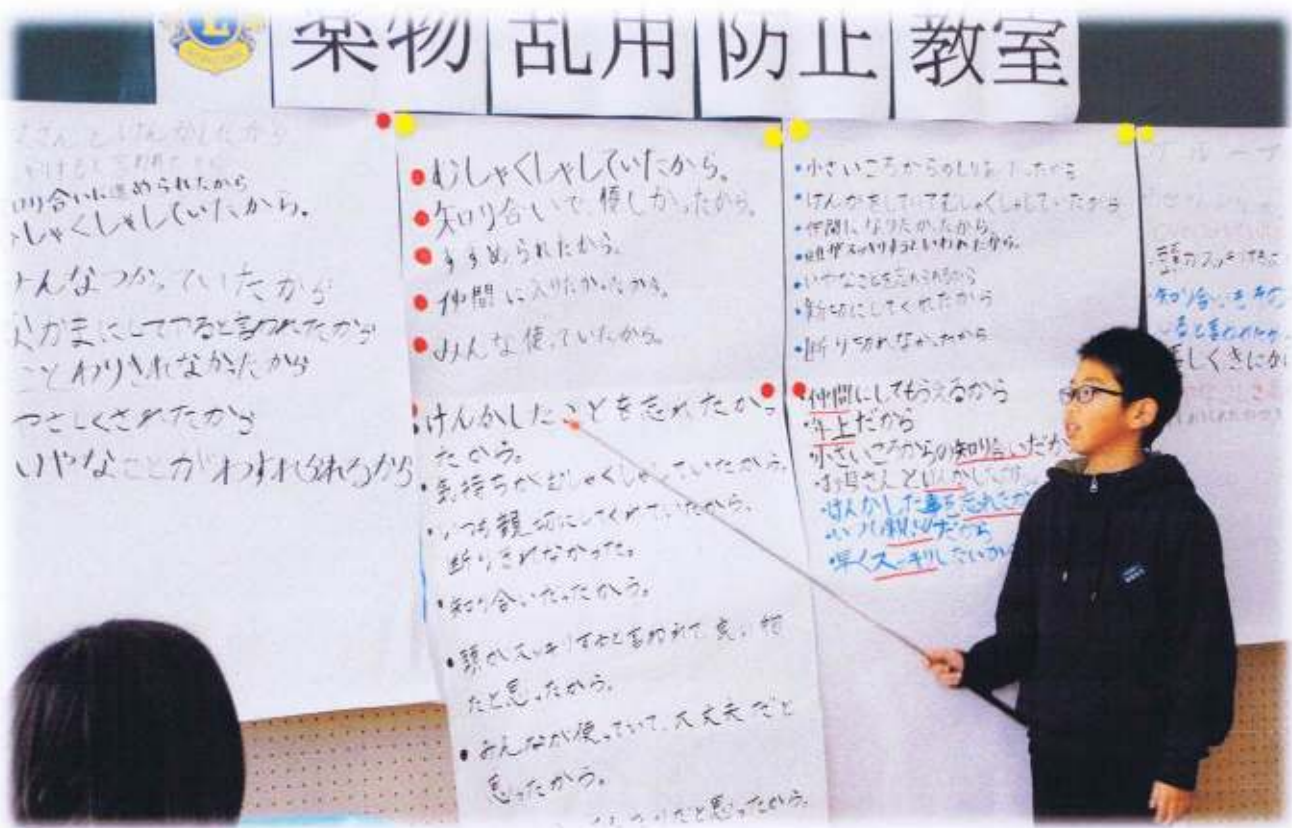 薬物乱用防止教室
さんとけんかしたから
知り合いに進められたから
しゃくしゃしていたから。
みんなつかっていたから
なかまにしてやると言われたから
ことわりきれなかったから
やさしくされたから
いやなことがわすれられるから
むしゃくしゃしていたから。
知り合いで、優しかったから。
すすめられたから。
仲間に入りたかったから。
みんな使っていたから。
けんかしたことを忘れたかっ
たから。
気持ちがむしゃくしゃしていたから。
いつも親切にしてくれていたから。
断りきれなかった。
知り合いだったから。
頭がスッキリすると言われて、良い物
だと思ったから。
みんなが使っていて、大丈夫だと
思ったから。
たと思ったから。
小さいころからのしりあいだったから
けんかをしていてむしゃくしゃしていたから
仲間になりたかったから。
頭がスッキリするよといわれたから。
いやなことを忘れられるから
親切にしてくれたから
断り切れなかったから
仲間にしてもらえるから
年上だから
小さいころからの知り合いだか
お母さんとけんかしたから
けんかした事を忘れたか
いつも親切だから
早くスッキリしたいか
グループ
頭がスッキリする
知り合いも
ると言われたか